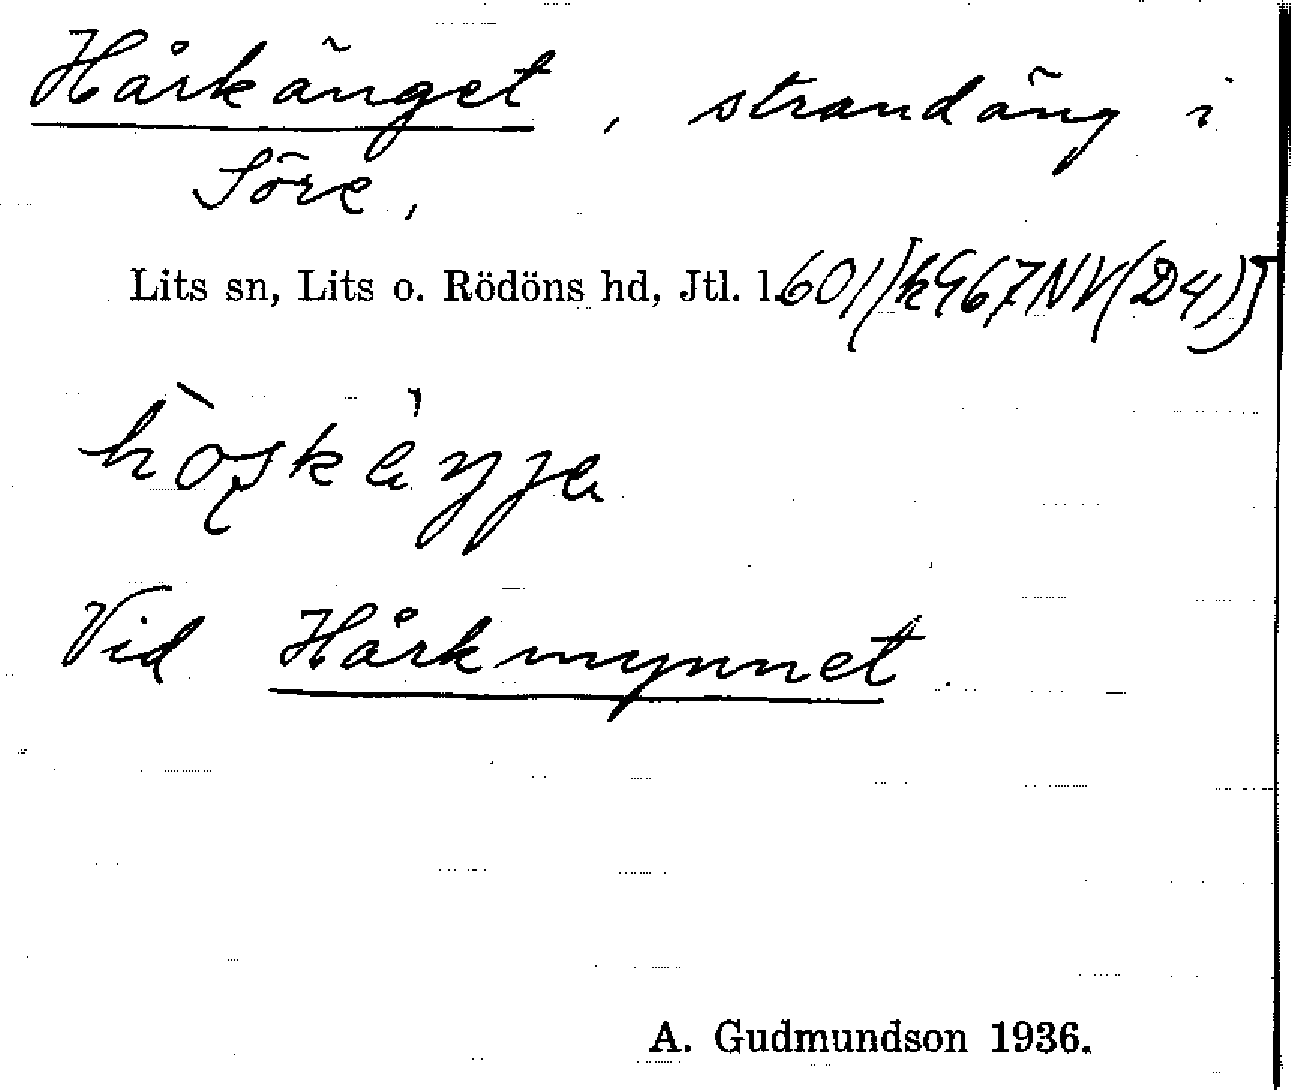 Hårkänget, strandäng i
Söre,
Lits sn, Lits o. Rödöns hd, Jtl. l. 601)
Vid Hårkmynnet.
A. Gudmundson 1936.